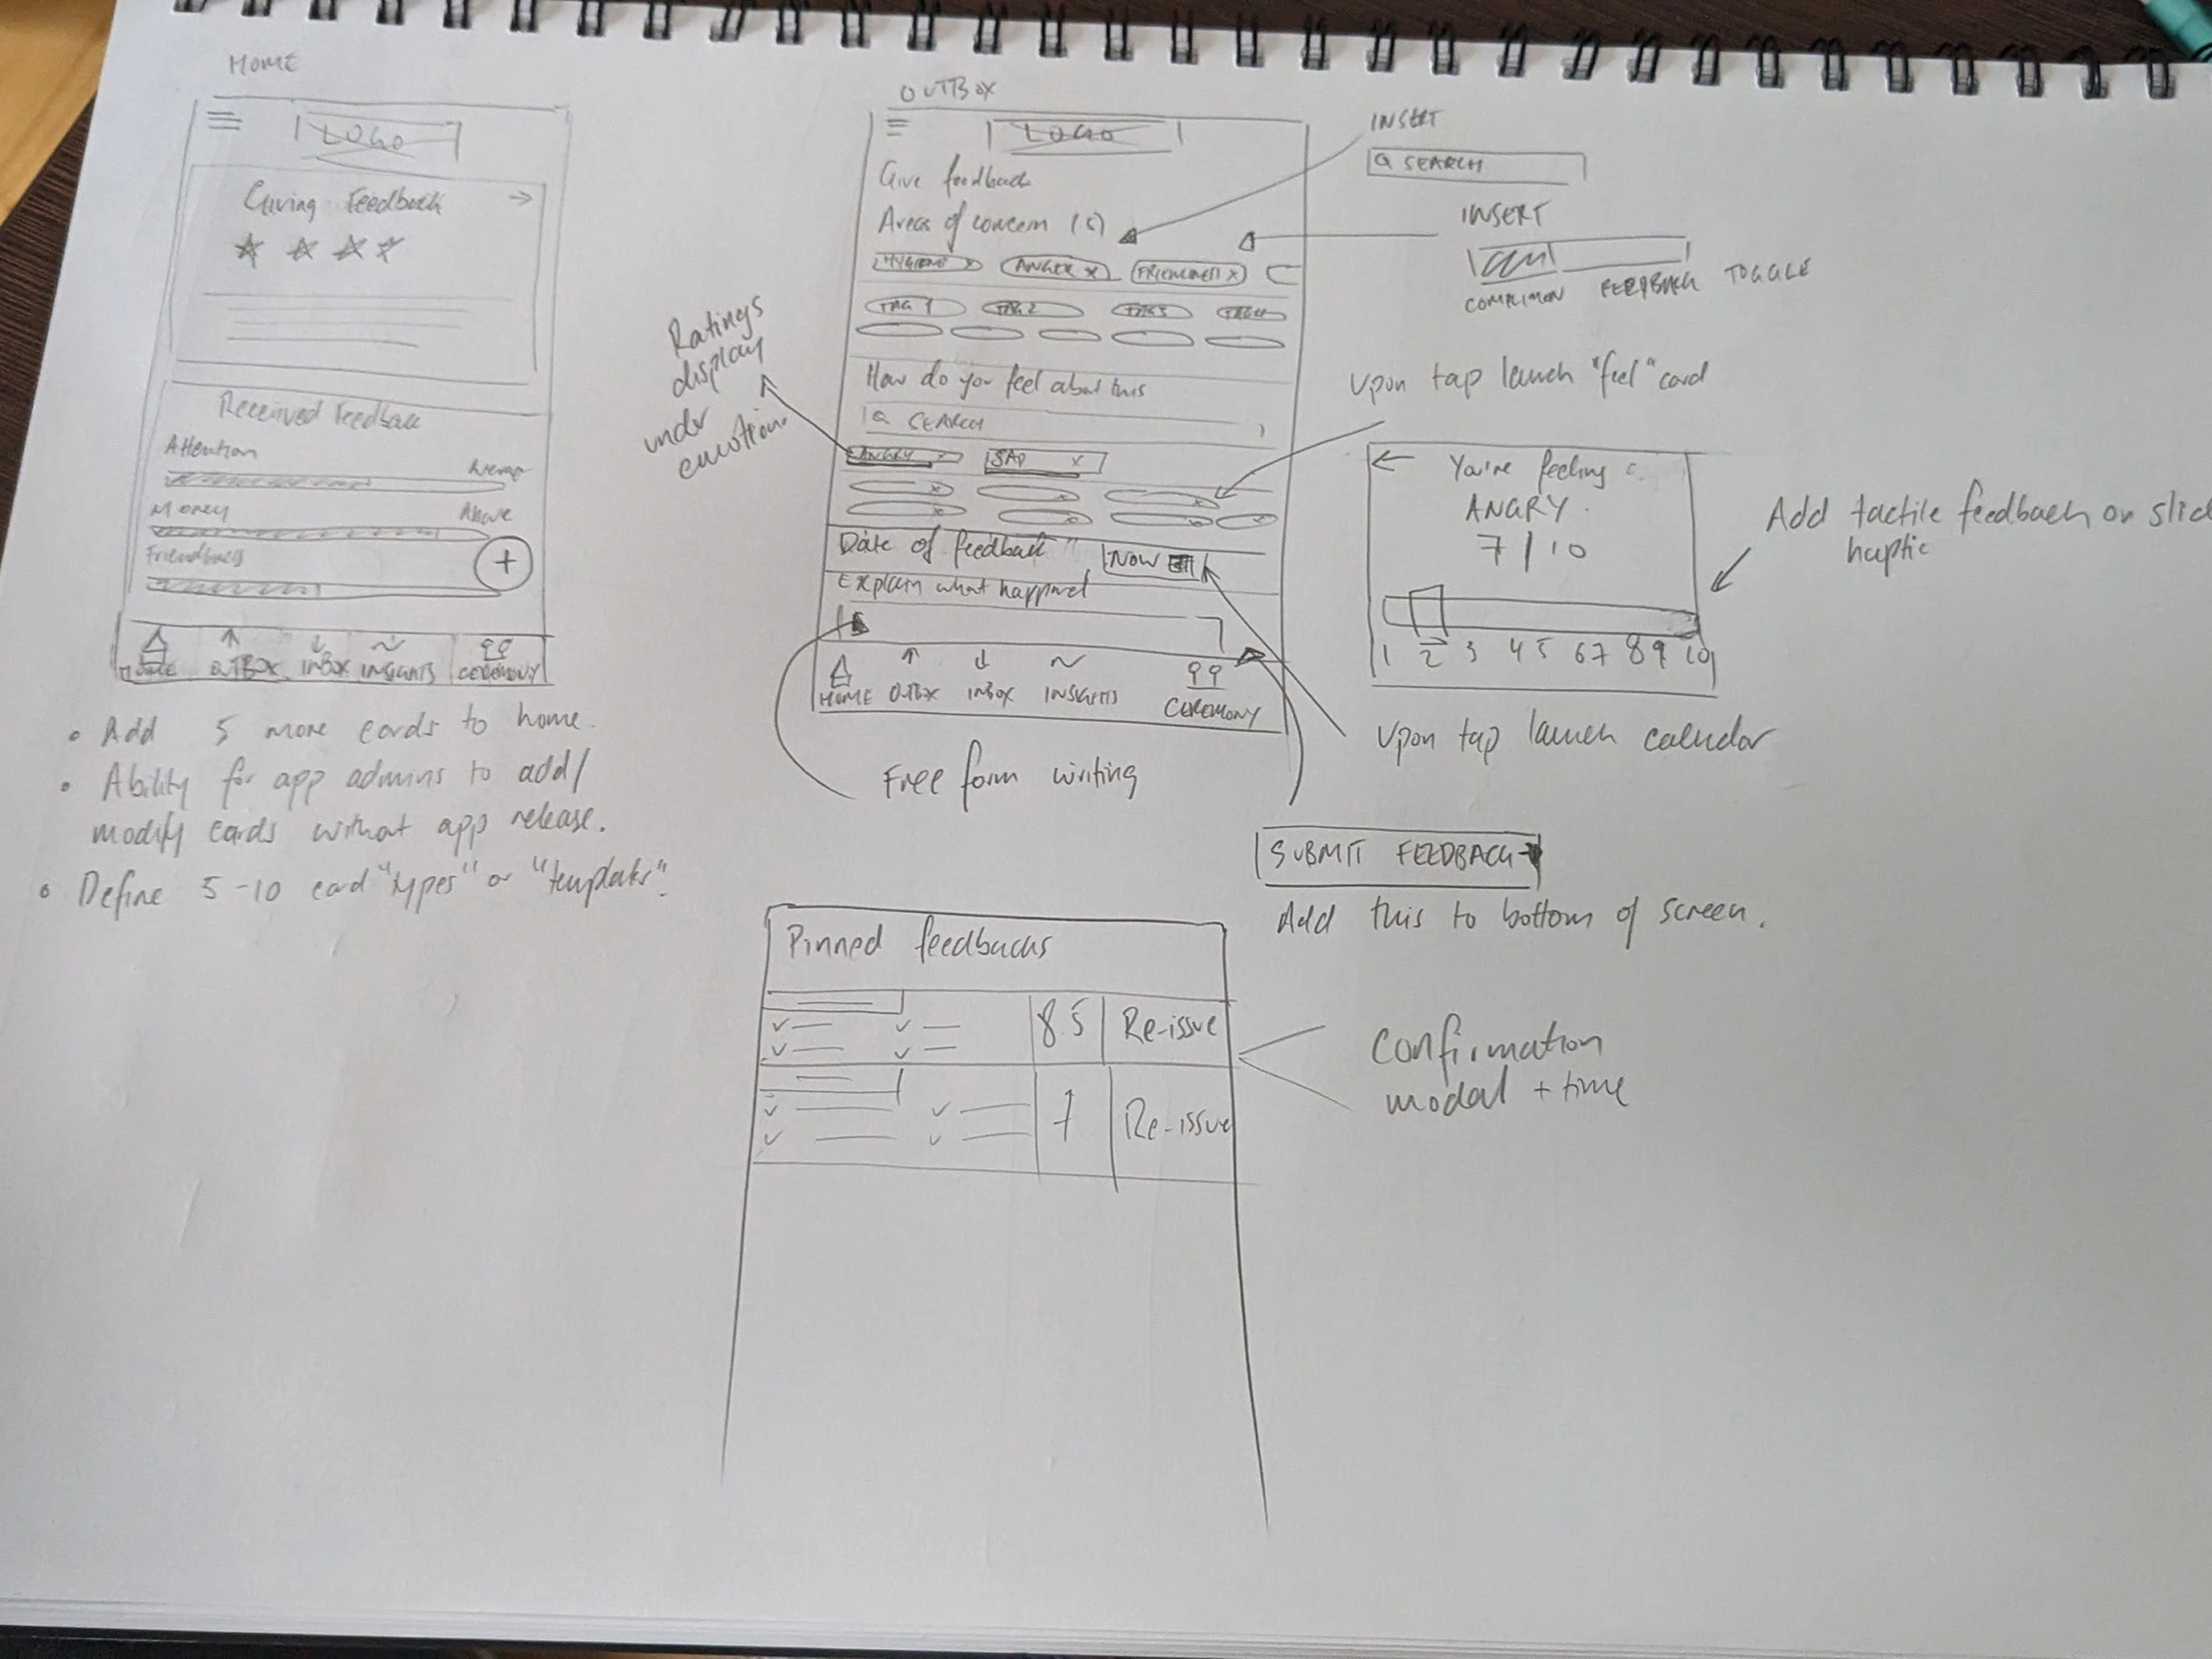 HOME
LOGO
Giving Feedback →
Received Feedback
Attention
Average
Money
Above
Friendliness
+
HOME OUTBOX INBOX INSIGHTS CEREMONY
• Add 5 more cards to home.
• Ability for app admins to add/
modify cards without app release.
• Define 5-10 card "types" or "templates".
OUTBOX
LOGO
Give feedback
Areas of concern (5)
HYGIENE x ANGER x FRIENDLINESS x
TAG 1 TAG 2 TAG 3 TAG 4
How do you feel about this
SEARCH
ANGRY x SAD x
Date of feedback NOW
Explain what happened
HOME OUTBOX INBOX INSIGHTS CEREMONY
Ratings
display
under
emotion.
Free form writing
INSERT
SEARCH
INSERT
FEEDBACK TOGGLE
Upon tap launch "feel" card
← You're feeling
ANGRY
7/10
1 2 3 4 5 6 7 8 9 10
Add tactile feedback on
haptic
Upon tap launch calendar
SUBMIT FEEDBACK
Add this to bottom of screen.
Pinned feedbacks
8.5 Re-issue
7 Re-issue
Confirmation
modal + time